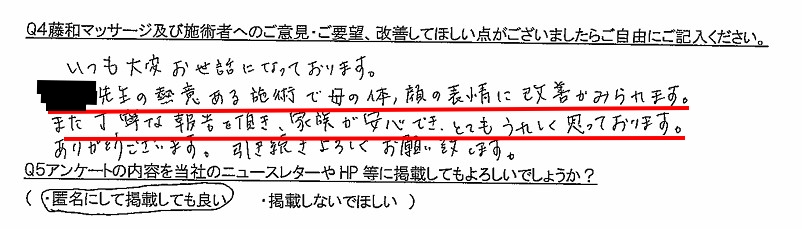 Q4藤和マッサージ及び施術者へのご意見・ご要望、改善してほしい点がございましたらご自由にご記入ください。
いつも大変お世話になっております。
先生の熱意ある施術で母の体,顔の表情に改善がみられます。
また丁寧な報告を頂き、家族が安心でき、とてもうれしく思っております。
ありがとうございます。引き続きよろしくお願い致します。
Q5アンケートの内容を当社のニュースレターやHP等に掲載してもよろしいでしょうか？
(・匿名にして掲載しても良い ・掲載しないでほしい )